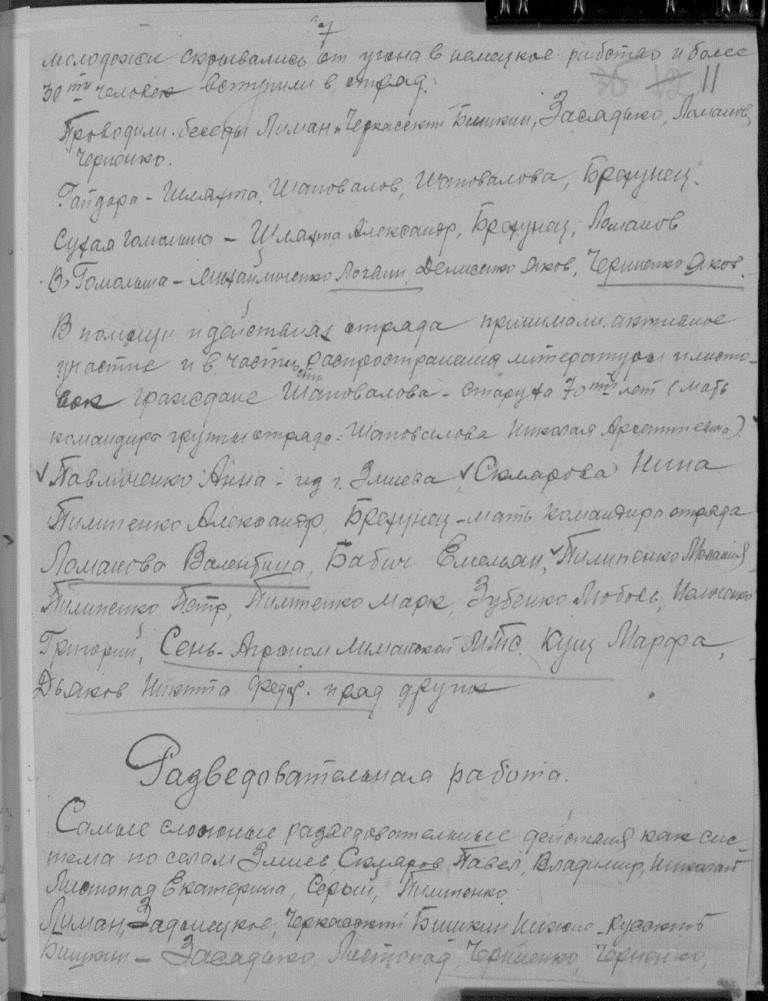 7
молодежи скрывались от угона в немецкое рабство и более
30 12 11
30ти человек вступили в отряд.
Проводили беседы Лиман, Черкасский Бишкин, Засядько, Ломанов,
Черненко.
Гайдара – Шляхта, Шаповалов, Шаповалова, Брехунец.
Сухая Гомольша – Шляхта Александр, Брехунец, Ломанов
В. Гомольша – Денисенко Яков, Черненко Яков.
В помощи и действиях отряда принимали активное
участие и в части распространения литературы и листо-
вок граждане Шаповалова – старуха 70ти лет (мать
командира группы отряда: Шаповалова Николая Арсентиевича)
Павличенко Анна – из г. Змиева Склярова Нина
Пилипенко Александр, Брехунец – мать командира отряда
Ломанова Валентина, Бабич Емельян, Пилипенко Мелания
Пилипенко Петр, Пилипенко Марк, Зубенко Любовь,
Григорий, Сень – Агроном Лиманской МТС. Кущ Марфа,
Дьяков Никита Федор. и ряд других
Разведовательная работа.
Самые сложные разведовательные действия как сис-
тема по селам Змиев, Скляров Павел, Владимир, Николай
Листопад Екатерина, Серый, Пилипенко
Лиман, Задонецкое, Черкасский Бишкин Нижне-Русский
Бишкин – Засядько, Листопад, Черненко, Черненко,